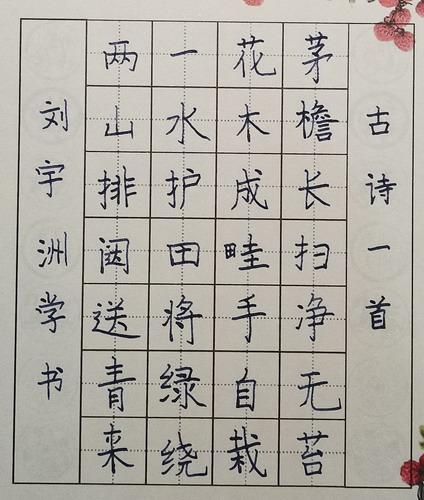 古诗一首
茅檐长扫净无苔
花木成畦手自栽
一水护田将绿绕
两山排闼送青来
刘宇洲学书